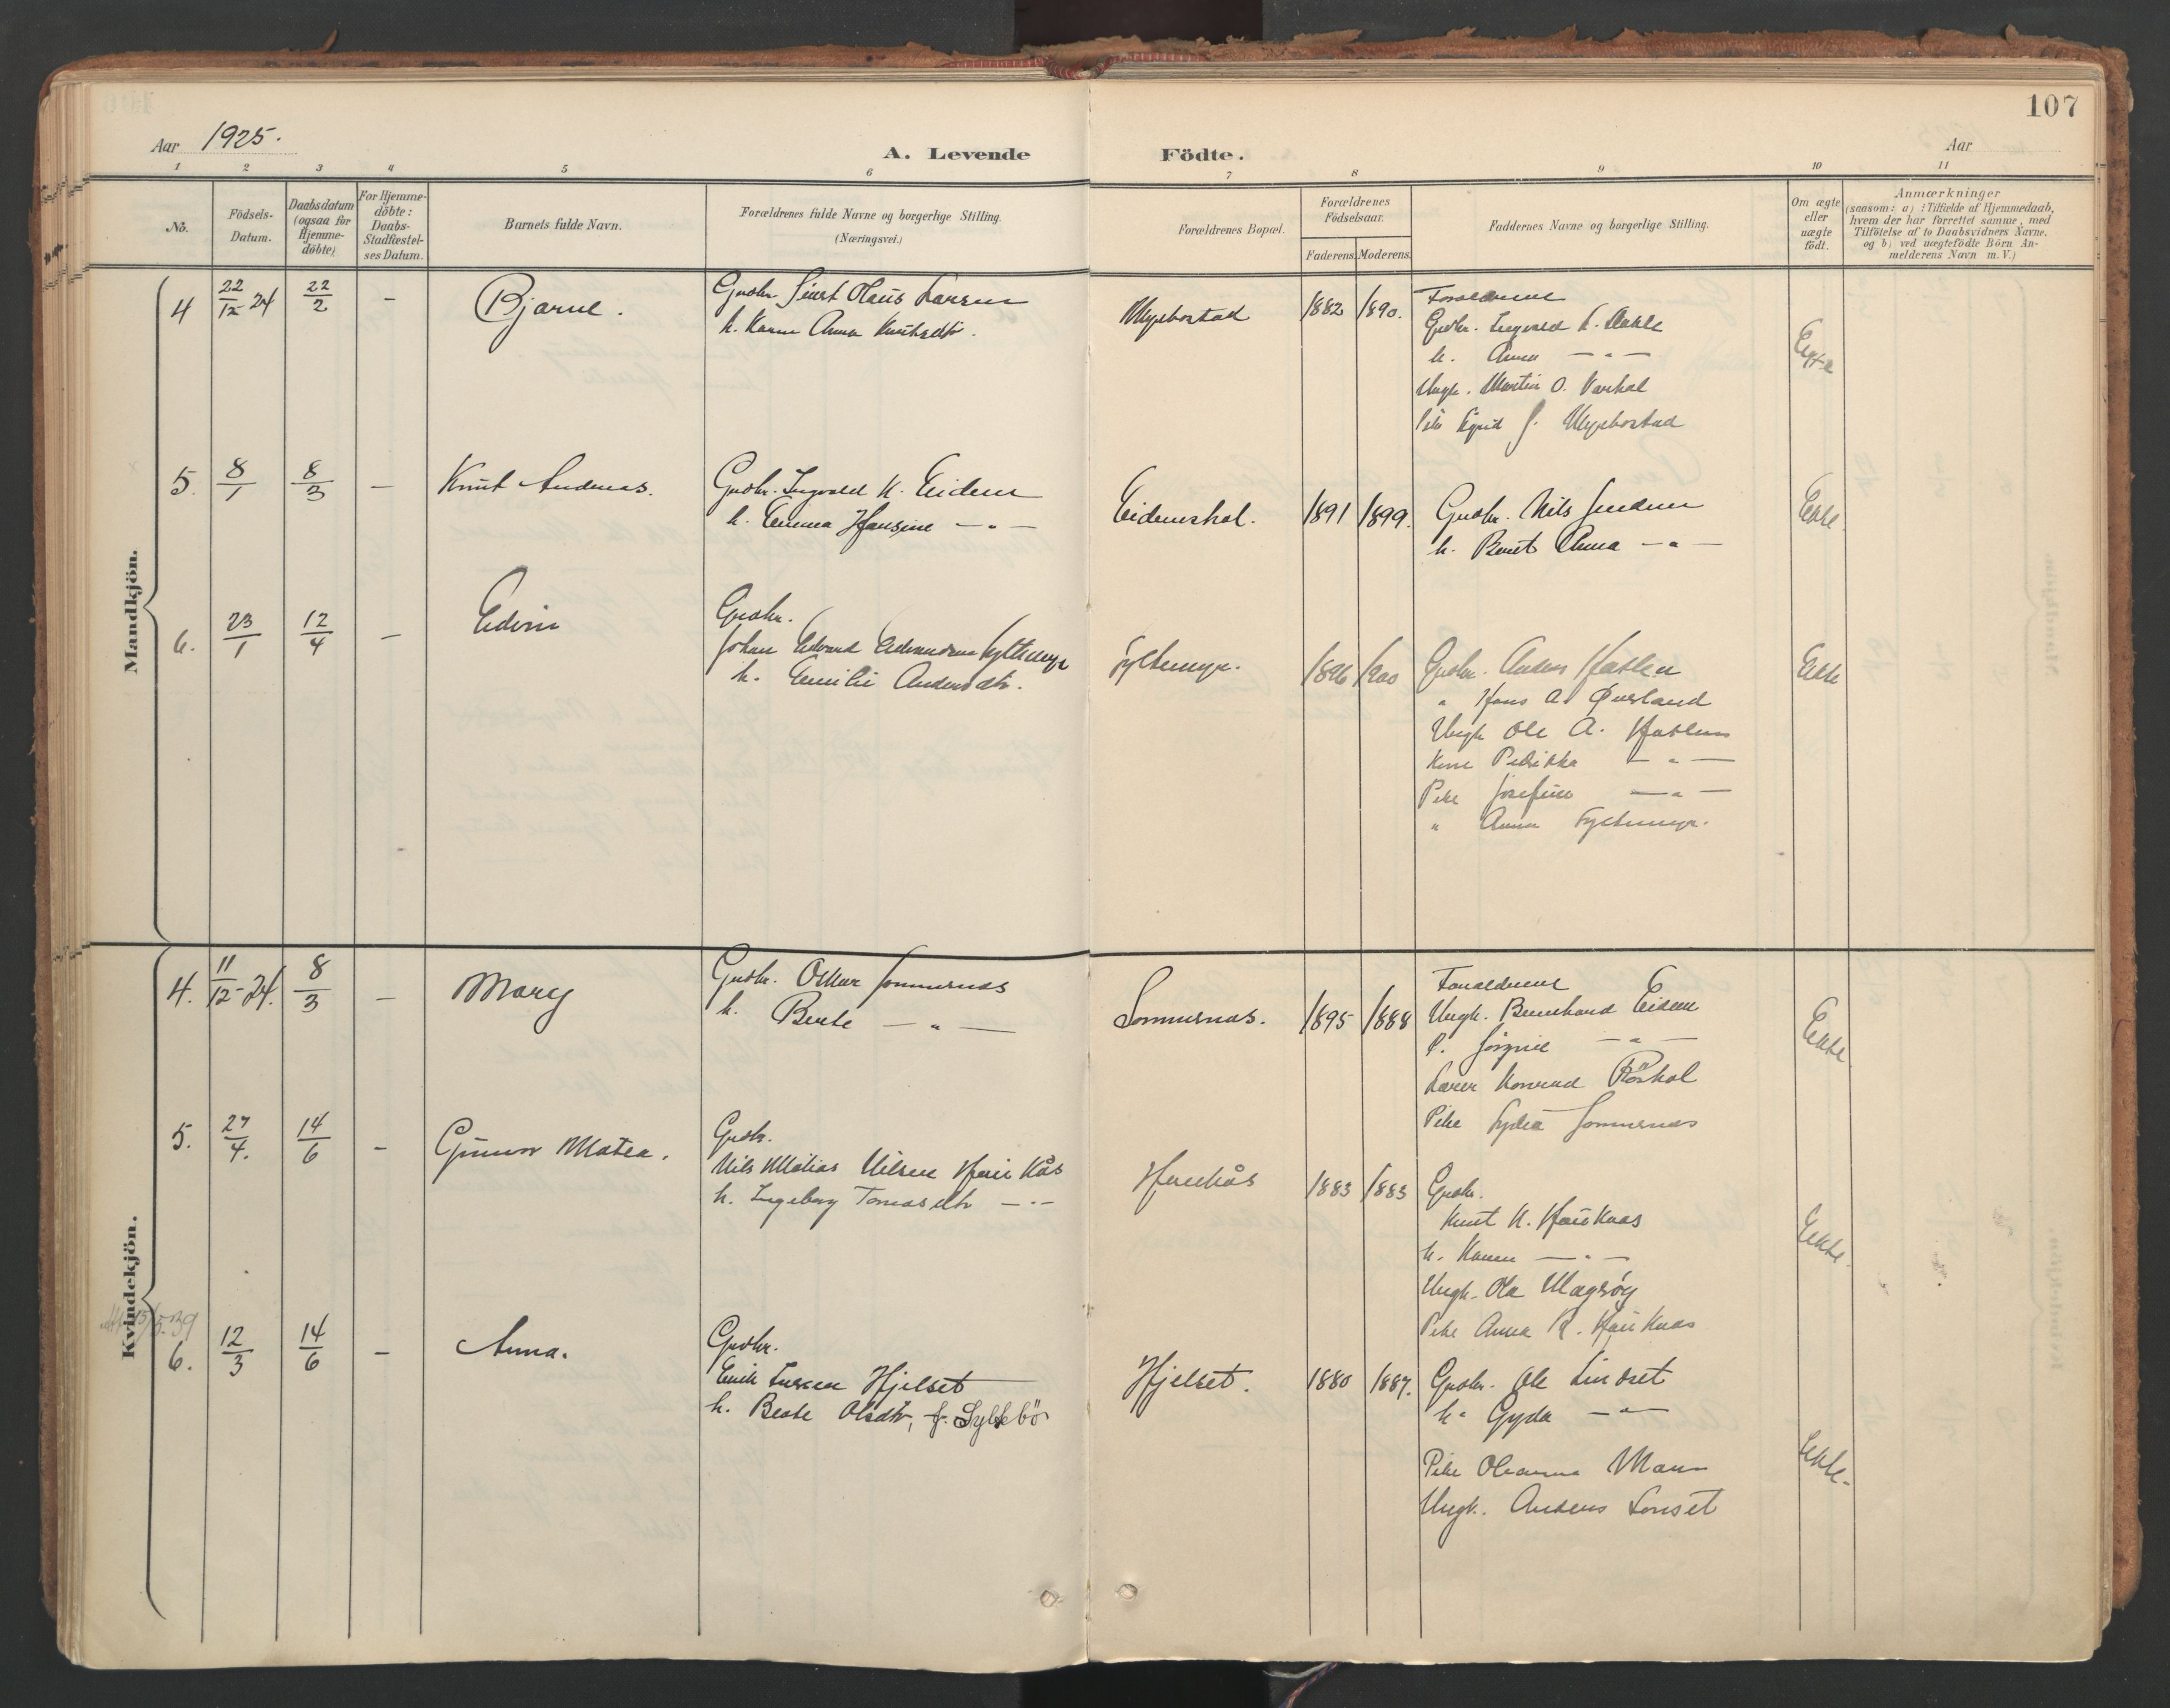 107
Aar 1925.
A. Levende Födte.
Aar
1 2 3 4 5 6 7 8 9 10 11
No.
Födsels-Datum.
Daabsdatum (ogsaa for Hjemme-döbte)
For Hjemme-döbte: Daabs-Stadfæstel-ses Datum.
Barnets fulde Navn.
Forældrenes fulde Navne og borgerlige Stilling. (Næringsvei.)
Forældrenes Bopæl.
Forældrenes Födselsaar.
Faderens. Moderens.
Faddernes Navne og borgerlige Stilling.
Om ægte eller uægte födt.
Anmærkninger
(saasom: a) i Tilfælde af Hjemmedaab,
hvem der har forrettet samme, med
Tilföielse af to Daabsvidners Navne,
og b) ved uægtefödte Börn An-
melderens Navn m. V.)
Mandkjön.
4 22/12-24 22/2 - Bjarne.
Gmbr. Sivert Olaus Larsen
h. Karen Anna Knutsdtr.
Myrbostad 1882 1890.
Foreldrene
Gmbr. Ingvald L.
h. Anna - " -
Ungk. Martin O. Varhol
Pike Sigrid J. Myrbostad
Egte
5. 8/1 8/3 - Knut Andreas.
Gmbr. Ingvald K. Eidem
h. Emma Hansine - " -
Eidemshol. 1891 1899.
Gmbr. Nils
h. Berit Anna - " -
Ekte.
6. 23/1 12/4 - Edvin
Gmbr.
Johan Edvard Edvardsen Syltemyr
h. Emilie Andersdtr.
Syltemyr. 1896 1900
Gmbr. Anders Haslen
" Hans A. Øverland
Ungk Ole A. Haslen
Kone Petrikka - " -
Pike Josefine - " -
" Anna Syltemyr.
Ekte
Kvindekjön.
4. 11/12-24. 8/3 - Mary
Gmbr. Oskar Sommernes
h. Berte - " -
Sommernes. 1895 1888
Foreldrene
Ungk. Bernhard Eidem
P. Jörgine - " -
Lærer Konrad Röshol
Pike Lydia Sommernes
Ekte
5. 27/4. 14/6 - Gunvor Matea.
Gmbr.
Nils Matias Nilsen Haukås
h. Ingeborg Tomasdtr - " -
Haukås 1883 1883
Gmbr.
Knut K. Haukaas
h. Karen - " -
Ungk. Ola Magröy
Pike Anna K. Haukaas
Ekte.
15/5.39
6. 12/3 14/6 - Anna.
Gmbr.
Erik Iversen Hjelset
h. Beate Olsdtr, f. Syltebö
Hjelset. 1880 1887.
Gmbr. Ole Lindset
h. Gyda - " -
Pike Oleanna Moen
Ungk. Anders Lonset
Ekte.